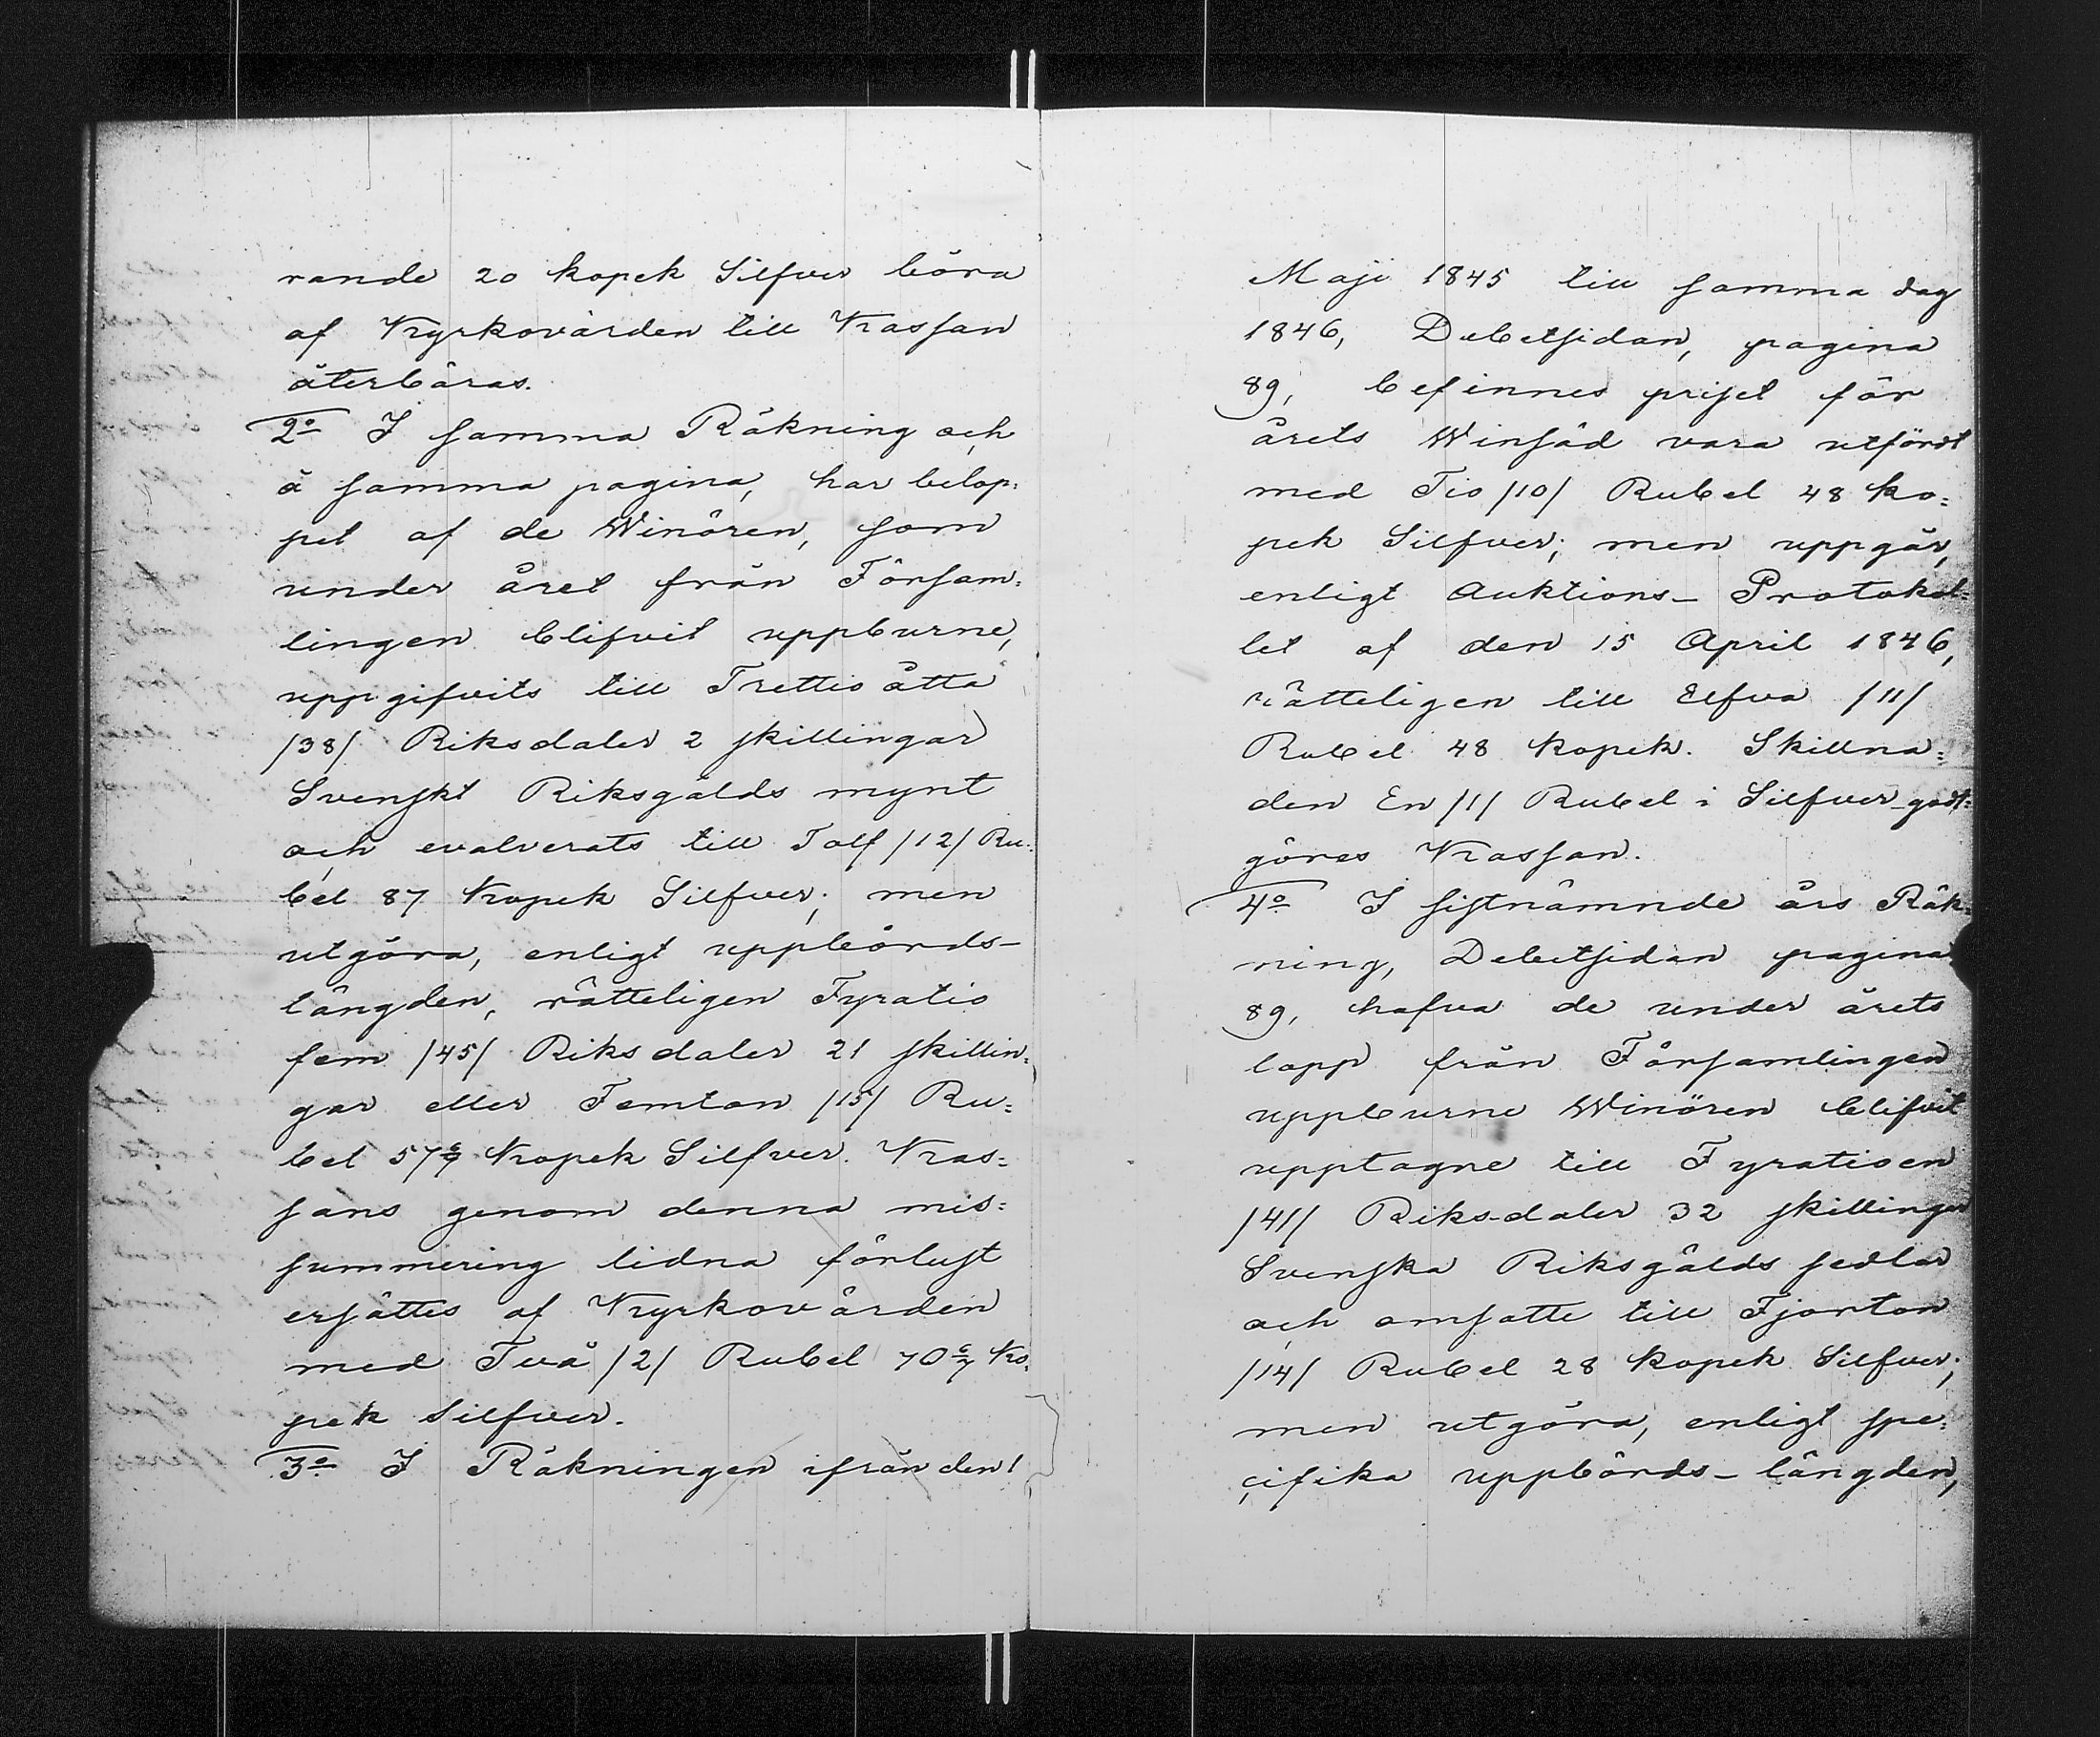 rande 20 kopek Silfver böra
af Kyrkovärden till Kassan
återbäras.
2o I samma Räkning och
å samma pagina, har belop:
pet af de Winören, som
under året från Försam:
lingen blifvit uppburne,
uppgifvits till Trettioåtta
/38/ Riksdaler 2 skillingar
Svenskt Riksgälds mynt
och evalverats till Tolf /12/ Ru:
bel 87 Kopek Silfver; men
utgöra, enligt uppbörds-
längden, rätteligen Fyratio
fem /45/ Riksdaler 21 skillin:
gar eller Femton /15/ Ru:
bel 57 6/7 Kopek Silfver. Kas:
sans genom denna mis:
summering lidna förlust
ersättes af Kyrkovärden
med Två /2/ Rubel 70 6/7 Ko:
pek Silfver.
3o I Räkningen ifrån den 1
Maji 1845 till samma dag
1846, Debetsidan, pagina
89, befinnes priset för
årets Winsäd vara utfördt
med Tio /10/ Rubel 48 ko:
pek Silfver; men uppgår,
enligt Auktions-Protokol:
let af den 15 April 1846,
rätteligen till Elfva /11/
Rubel 48 kopek. Skillna:
den En /1/ Rubel i Silfver godt:
göres Kassan.
4o I sistnämnde års Räk:
ning, Debetsidan pagina
89, hafva de under årets
lopp från Församlingen
uppburne Winören blifvit
upptagne till Fyratioen
/41/ Riksdaler 32 skillingar
Svenska Riksgälds sedlar
och omsatte till Fjorton
/14/ Rubel 28 kopek Silfver;
men utgöra, enligt spe:
cifika uppbörds-längden,